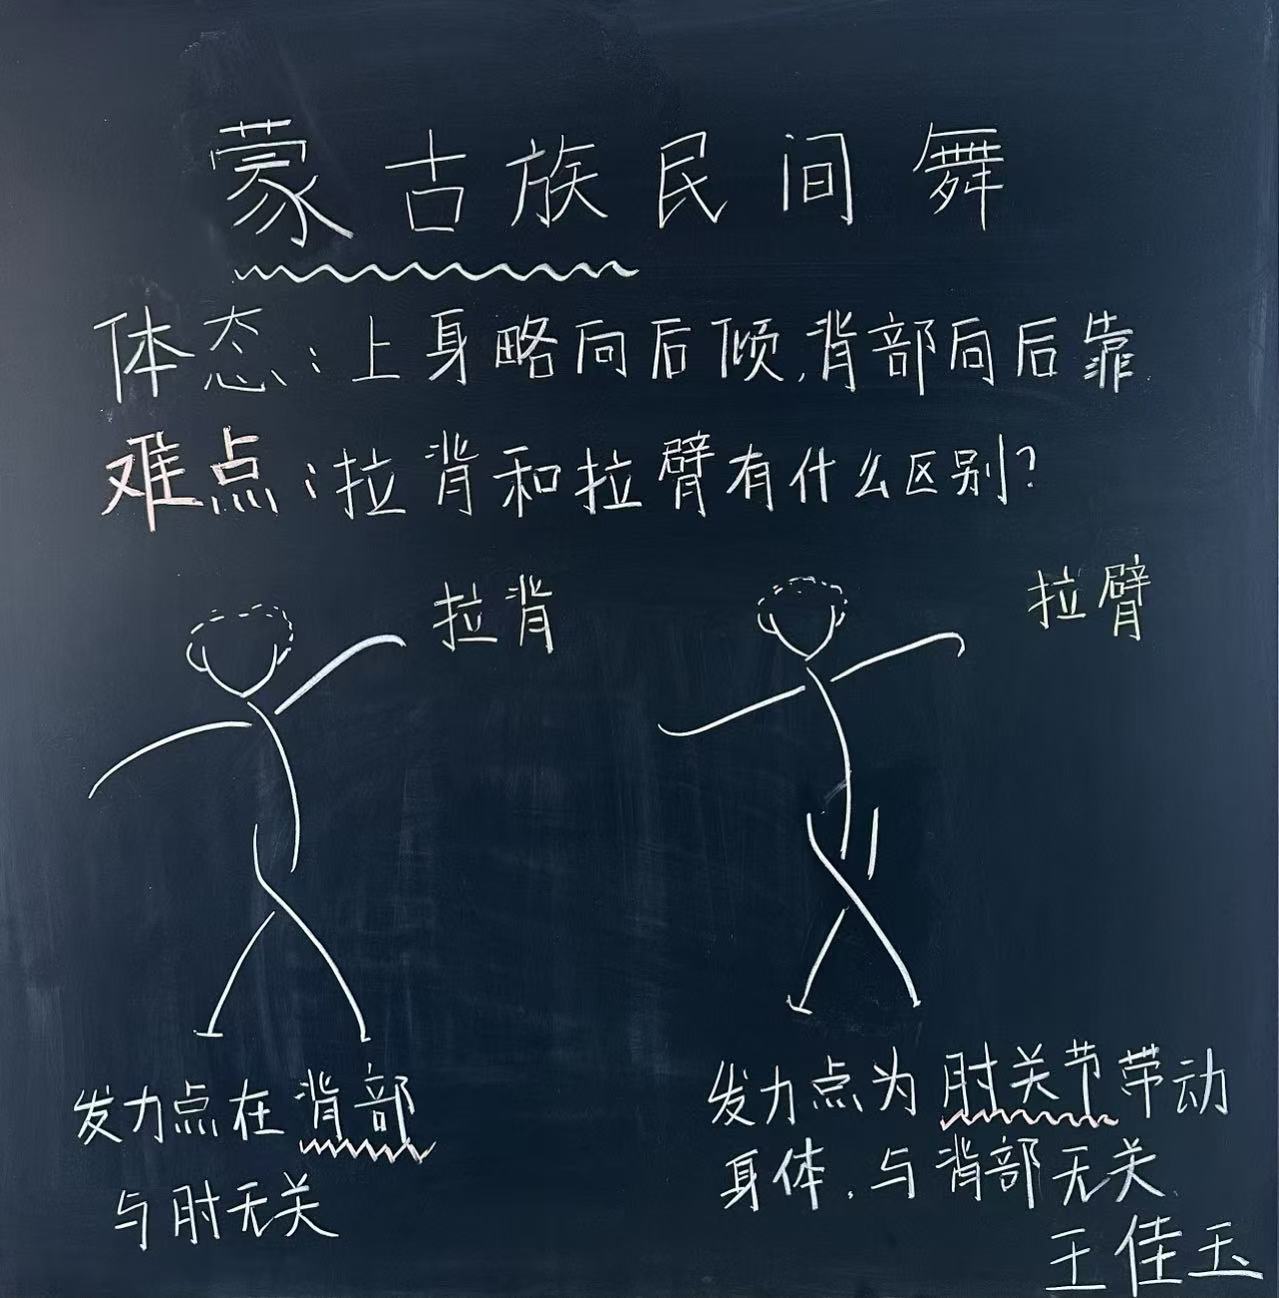 蒙古族民间舞
体态:上身略向后倾,背部向后靠
难点:拉背和拉臂有什么区别?
拉背
拉臂
发力点在背部
与肘无关
发力点为肘关节带动
身体,与背部无关
王佳玉